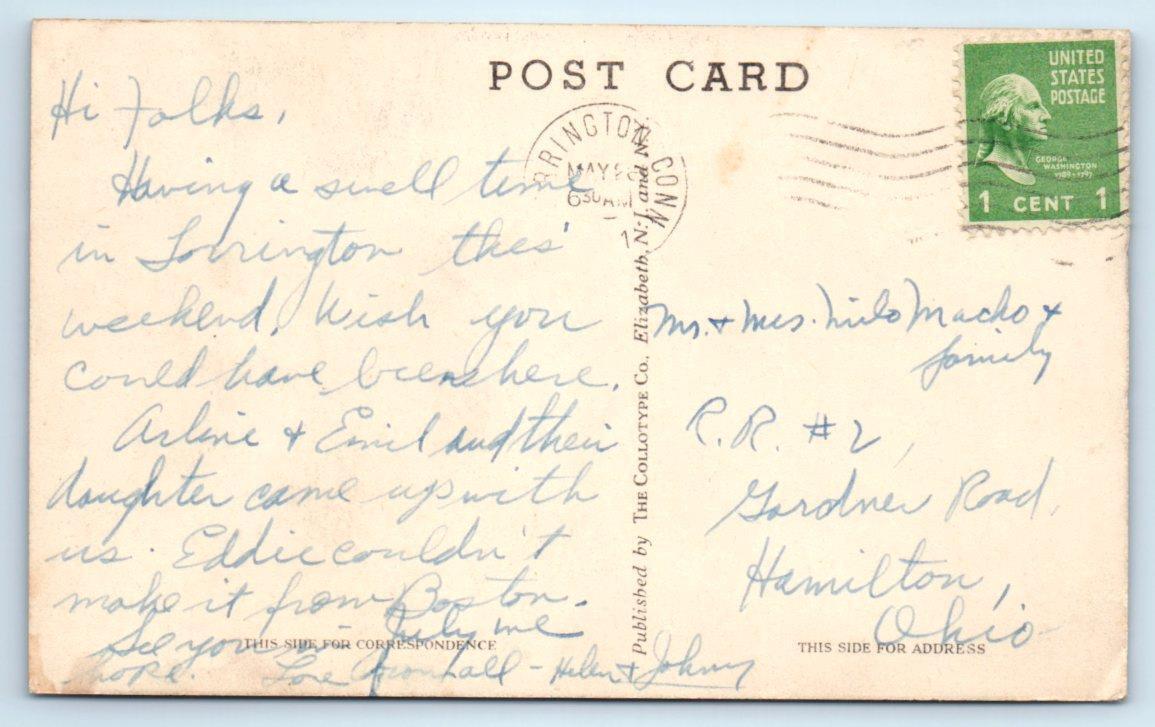 POST CARD
Hi Folks,
Having a swell time
in Torrington this
weekend. Wish you
could have been here.
Arline & Emil and their
daughter came up with
us. Eddie couldn't
make it from Boston.
See you in July we
hope. Love from all - Helen & Johnny
THIS SIDE FOR CORRESPONDENCE
Published by THE COLLOTYPE CO., Elizabeth, N.J. and N.
RRINGTON CONN
MAY
6 30 AM
UNITED
STATES
POSTAGE
GEORGE
WASHINGTON
1789-1797
1 CENT 1
Mr. & Mrs. Milo Macho &
family
R.R. #2,
Gardner Road,
Hamilton,
Ohio
THIS SIDE FOR ADDRESS